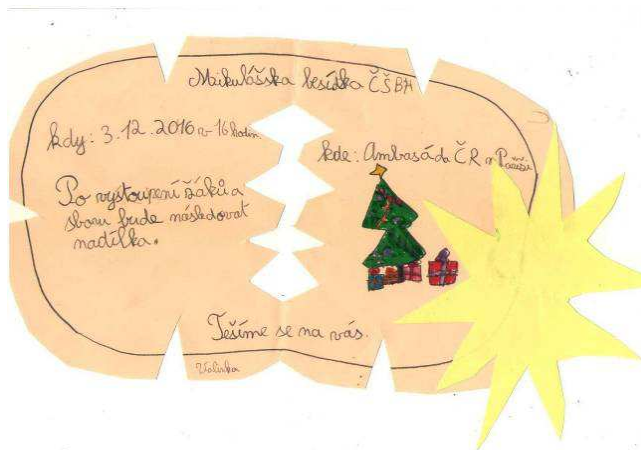 Mikulášska besídka ČŠBH
kdy: 3.12.2016 v 16 hodin.
kde: Ambasáda ČR v Paříži
Po vystoupení žáků a
sboru bude následovat
nadílka.
Těšíme se na vás.